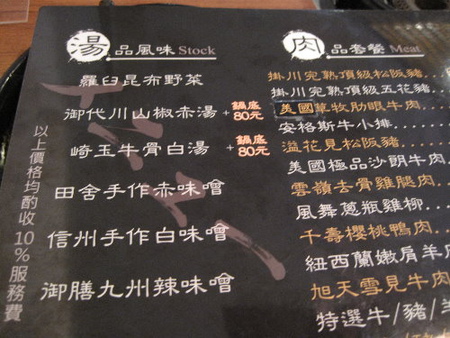 湯 品風味 Stock
羅臼昆布野菜
御代川山椒赤湯 + 鍋底80元
崎玉牛骨白湯 + 鍋底80元
田舍手作赤味噌
信州手作白味噌
御膳九州辣味噌
以上價格均酌收10%服務費
肉 品套餐 Meat
掛川完熟頂級松阪豬..
掛川完熟頂級五花豬..
美國草牧肋眼牛肉....
安格斯牛小排...........
溢花見松阪豬...........
美國極品沙朗牛肉
雲嶺去骨雞腿肉....
風舞蔥瓶雞柳.......
千壽櫻桃鴨肉.......
紐西蘭嫩肩羊
旭天雪見牛肉
特選牛/豬/